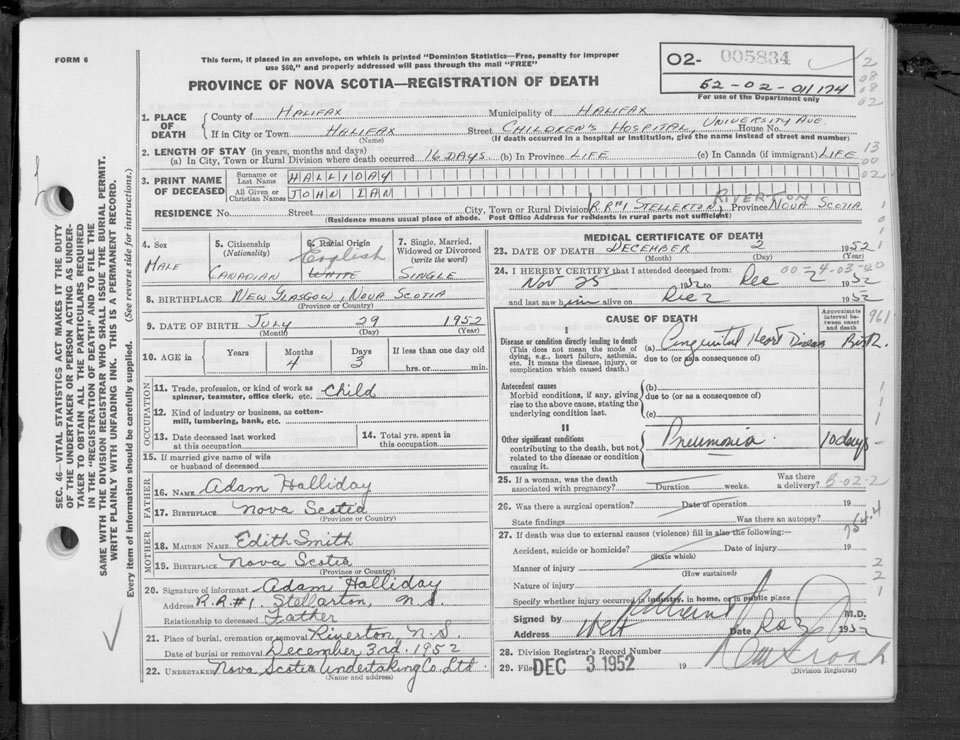 FORM 6
This form, if placed in an envelope, on which is printed "Dominion Statistics—Free, penalty for improper
use $50," and properly addressed will pass through the mail "FREE"
PROVINCE OF NOVA SCOTIA—REGISTRATION OF DEATH
02- 005834
52-02-01174
For use of the Department only
2
08
08
02
1. PLACE OF DEATH
County of HALIFAX Municipality of HALIFAX
If in City or Town HALIFAX Street CHILDREN'S HOSPITAL, UNIVERSITY AVE. House No.
(Name) (If death occurred in a hospital or institution, give the name instead of street and number)
2. LENGTH OF STAY (in years, months and days)
(a) In City, Town or Rural Division where death occurred 16 DAYS (b) In Province LIFE (c) In Canada (if immigrant) LIFE
13
00
02
3. PRINT NAME OF DECEASED
Surname or Last Name HALLIDAY
All Given or Christian Names JOHN IAN
RESIDENCE No. Street City, Town or Rural Division R.R #1 STELLERTON, RIVERTON Province NOVA SCOTIA
(Residence means usual place of abode. Post Office Address for residents in rural parts not sufficient)
4. Sex
MALE
5. Citizenship
(Nationality)
CANADIAN
6. Racial Origin
English
WHITE
7. Single, Married,
Widowed or Divorced
(write the word)
SINGLE
8. BIRTHPLACE NEW GLASGOW, NOVA SCOTIA
(Province or Country)
9. DATE OF BIRTH JULY 29 1952
(Month) (Day) (Year)
10. AGE in Years Months Days If less than one day old
4 3 hrs. or min.
OCCUPATION
11. Trade, profession, or kind of work as
spinner, teamster, office clerk, etc. Child
12. Kind of industry or business, as cotton-
mill, lumbering, bank, etc.
13. Date deceased last worked
at this occupation
14. Total yrs. spent in
this occupation
15. If married give name of wife
or husband of deceased
FATHER
16. NAME Adam Halliday
17. BIRTHPLACE Nova Scotia
(Province or Country)
MOTHER
18. MAIDEN NAME Edith Smith
19. BIRTHPLACE Nova Scotia
(Province or Country)
20. Signature of informant Adam Halliday
Address R.R.#1. Stellarton, N.S.
Relationship to deceased Father
21. Place of burial, cremation or removal Riverton, N.S.
Date of burial or removal December 3rd. 1952
22. UNDERTAKER Nova Scotia Undertaking Co. Ltd.
(Name and address)
MEDICAL CERTIFICATE OF DEATH
23. DATE OF DEATH DECEMBER 2 1952
(Month) (Day) (Year)
24. I HEREBY CERTIFY that I attended deceased from: 00-4-03-20
Nov 25 1952 to Dec 2 1952
and last saw him alive on Dec 2 1952
CAUSE OF DEATH
Approximate interval between onset and death
961
I
Disease or condition directly leading to death
(This does not mean the mode of
dying, e.g., heart failure, asthenia,
etc. It means the disease, injury, or
complication which caused death.)
(a) Congenital Heart Disease Birth.
due to (or as a consequence of)
Antecedent causes
Morbid conditions, if any, giving
rise to the above cause, stating the
underlying condition last.
(b)
due to (or as a consequence of)
(c)
II
Other significant conditions
contributing to the death, but not
related to the disease or condition
causing it.
Pneumonia. 10 days
25. If a woman, was the death
associated with pregnancy? Duration weeks. Was there
a delivery? 5-02-2
26. Was there a surgical operation? Date of operation 19
State findings Was there an autopsy?
27. If death was due to external causes (violence) fill in also the following:—
Accident, suicide or homicide? Date of injury 19
(State which)
Manner of injury
(How sustained)
Nature of injury
Specify whether injury occurred in industry, in home, or in public place
Signed by M.D.
Address Date Dec 2 1952
28. Division Registrar's Record Number
29. Filed DEC 3 1952 19
(Division Registrar)
SEC. 46—VITAL STATISTICS ACT MAKES IT THE DUTY
OF THE UNDERTAKER OR PERSON ACTING AS UNDER-
TAKER TO OBTAIN ALL THE PARTICULARS REQUIRED
IN THE "REGISTRATION OF DEATH" AND TO FILE THE
SAME WITH THE DIVISION REGISTRAR WHO SHALL ISSUE THE BURIAL PERMIT.
WRITE PLAINLY WITH UNFADING INK. THIS IS A PERMANENT RECORD.
Every item of information should be carefully supplied. (See reverse side for instructions.)